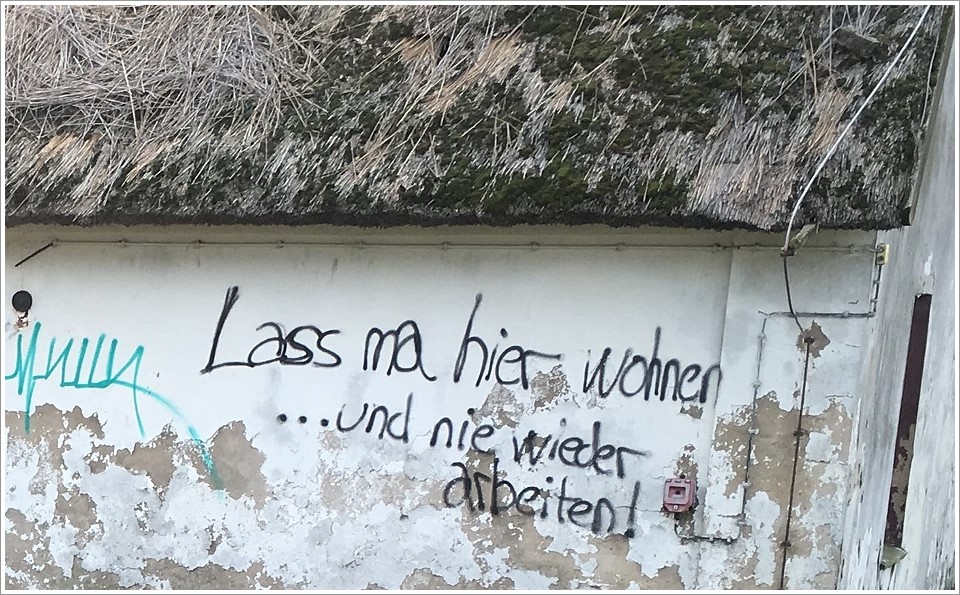 Lass ma hier wohnen
...und nie wieder
arbeiten!